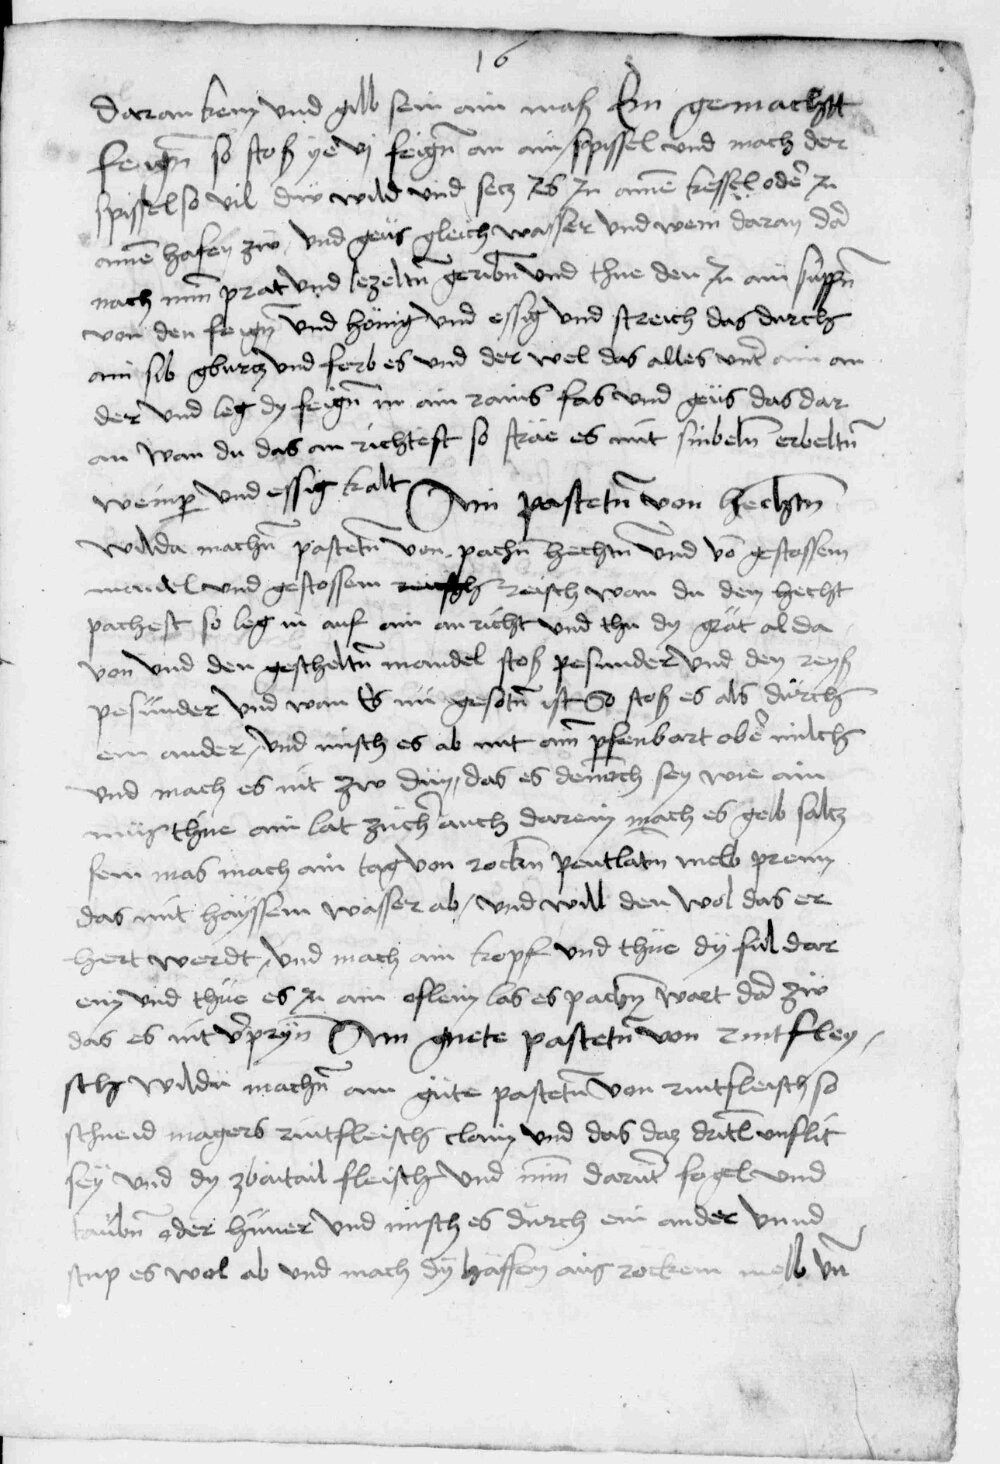 16
daran kem vnd gilb sein ain mass Ein gemachtt
feign̄ so stoss ye vj feign̄ an ain spissel vnd mach der
spissel so vil duw wild vnd secz es in ainē kessel oder in
ainē hafen zw vnd geus gleich wasser vnd wein daran dar
nach nim prat vnd lezeltn̄ geribn̄ vnd thue den in ain suppn̄
von den feign̄ vnd hönig vnd essig vnd streich das durch
ain sib gburcz vnd ferb es vnd der wel das alles vnter ain an
der vnd leg dy feign̄ in ain rains fas vnd geus das dar
an wan du das an richtest so sträe es mit sinbeln̄ erbeltn̄
weinper vnd essig kalt Ain pastetn̄ von hechtn̄
wilda machn̄ pastetn̄ von pachn̄ hechtn̄ vnd vō gestossem
mandel vnd gestossem reisch wan du den hecht
pachest so leg in auf ain anricht vnd thu dy grät al da
von vnd den gescheltn̄ mandel stoss pesunder vnd den reyss
pesunder vnd wan es nu gesotn̄ ist So stoss es als durch
ein ander vnd misch es ab mit aim pfenbart ober milch
vnd mach es nit zw dün das es dennoch sey wie ain
mus thue ain lat zucher auch darein mach es gelb saltz
sein mas mach ain tag von rockn̄ peutlatm melb prenn
das mit hayssem wasser ab vnd will den wol das er
hert werdt vnd mach ain kopf vnd thue dy ful dar
ein vnd thue es in ain oflein las es pachn̄ wart dar zw
das es nit v̄prynn Ain guete pastetn̄ von rintfley
sch wildu machn̄ ain gute pastetn̄ von rintfleisch so
schneid magers rintfleisch clain vnd das daz drittl unslit
sey vnd dy zbaitail fleisch vnd nim darunt̄ fogel vnd
taubn̄ oder huner vnd misch es durch ein ander vnnd
stup es wol ab vnd mach dy häffen aus rockem melb vn̄